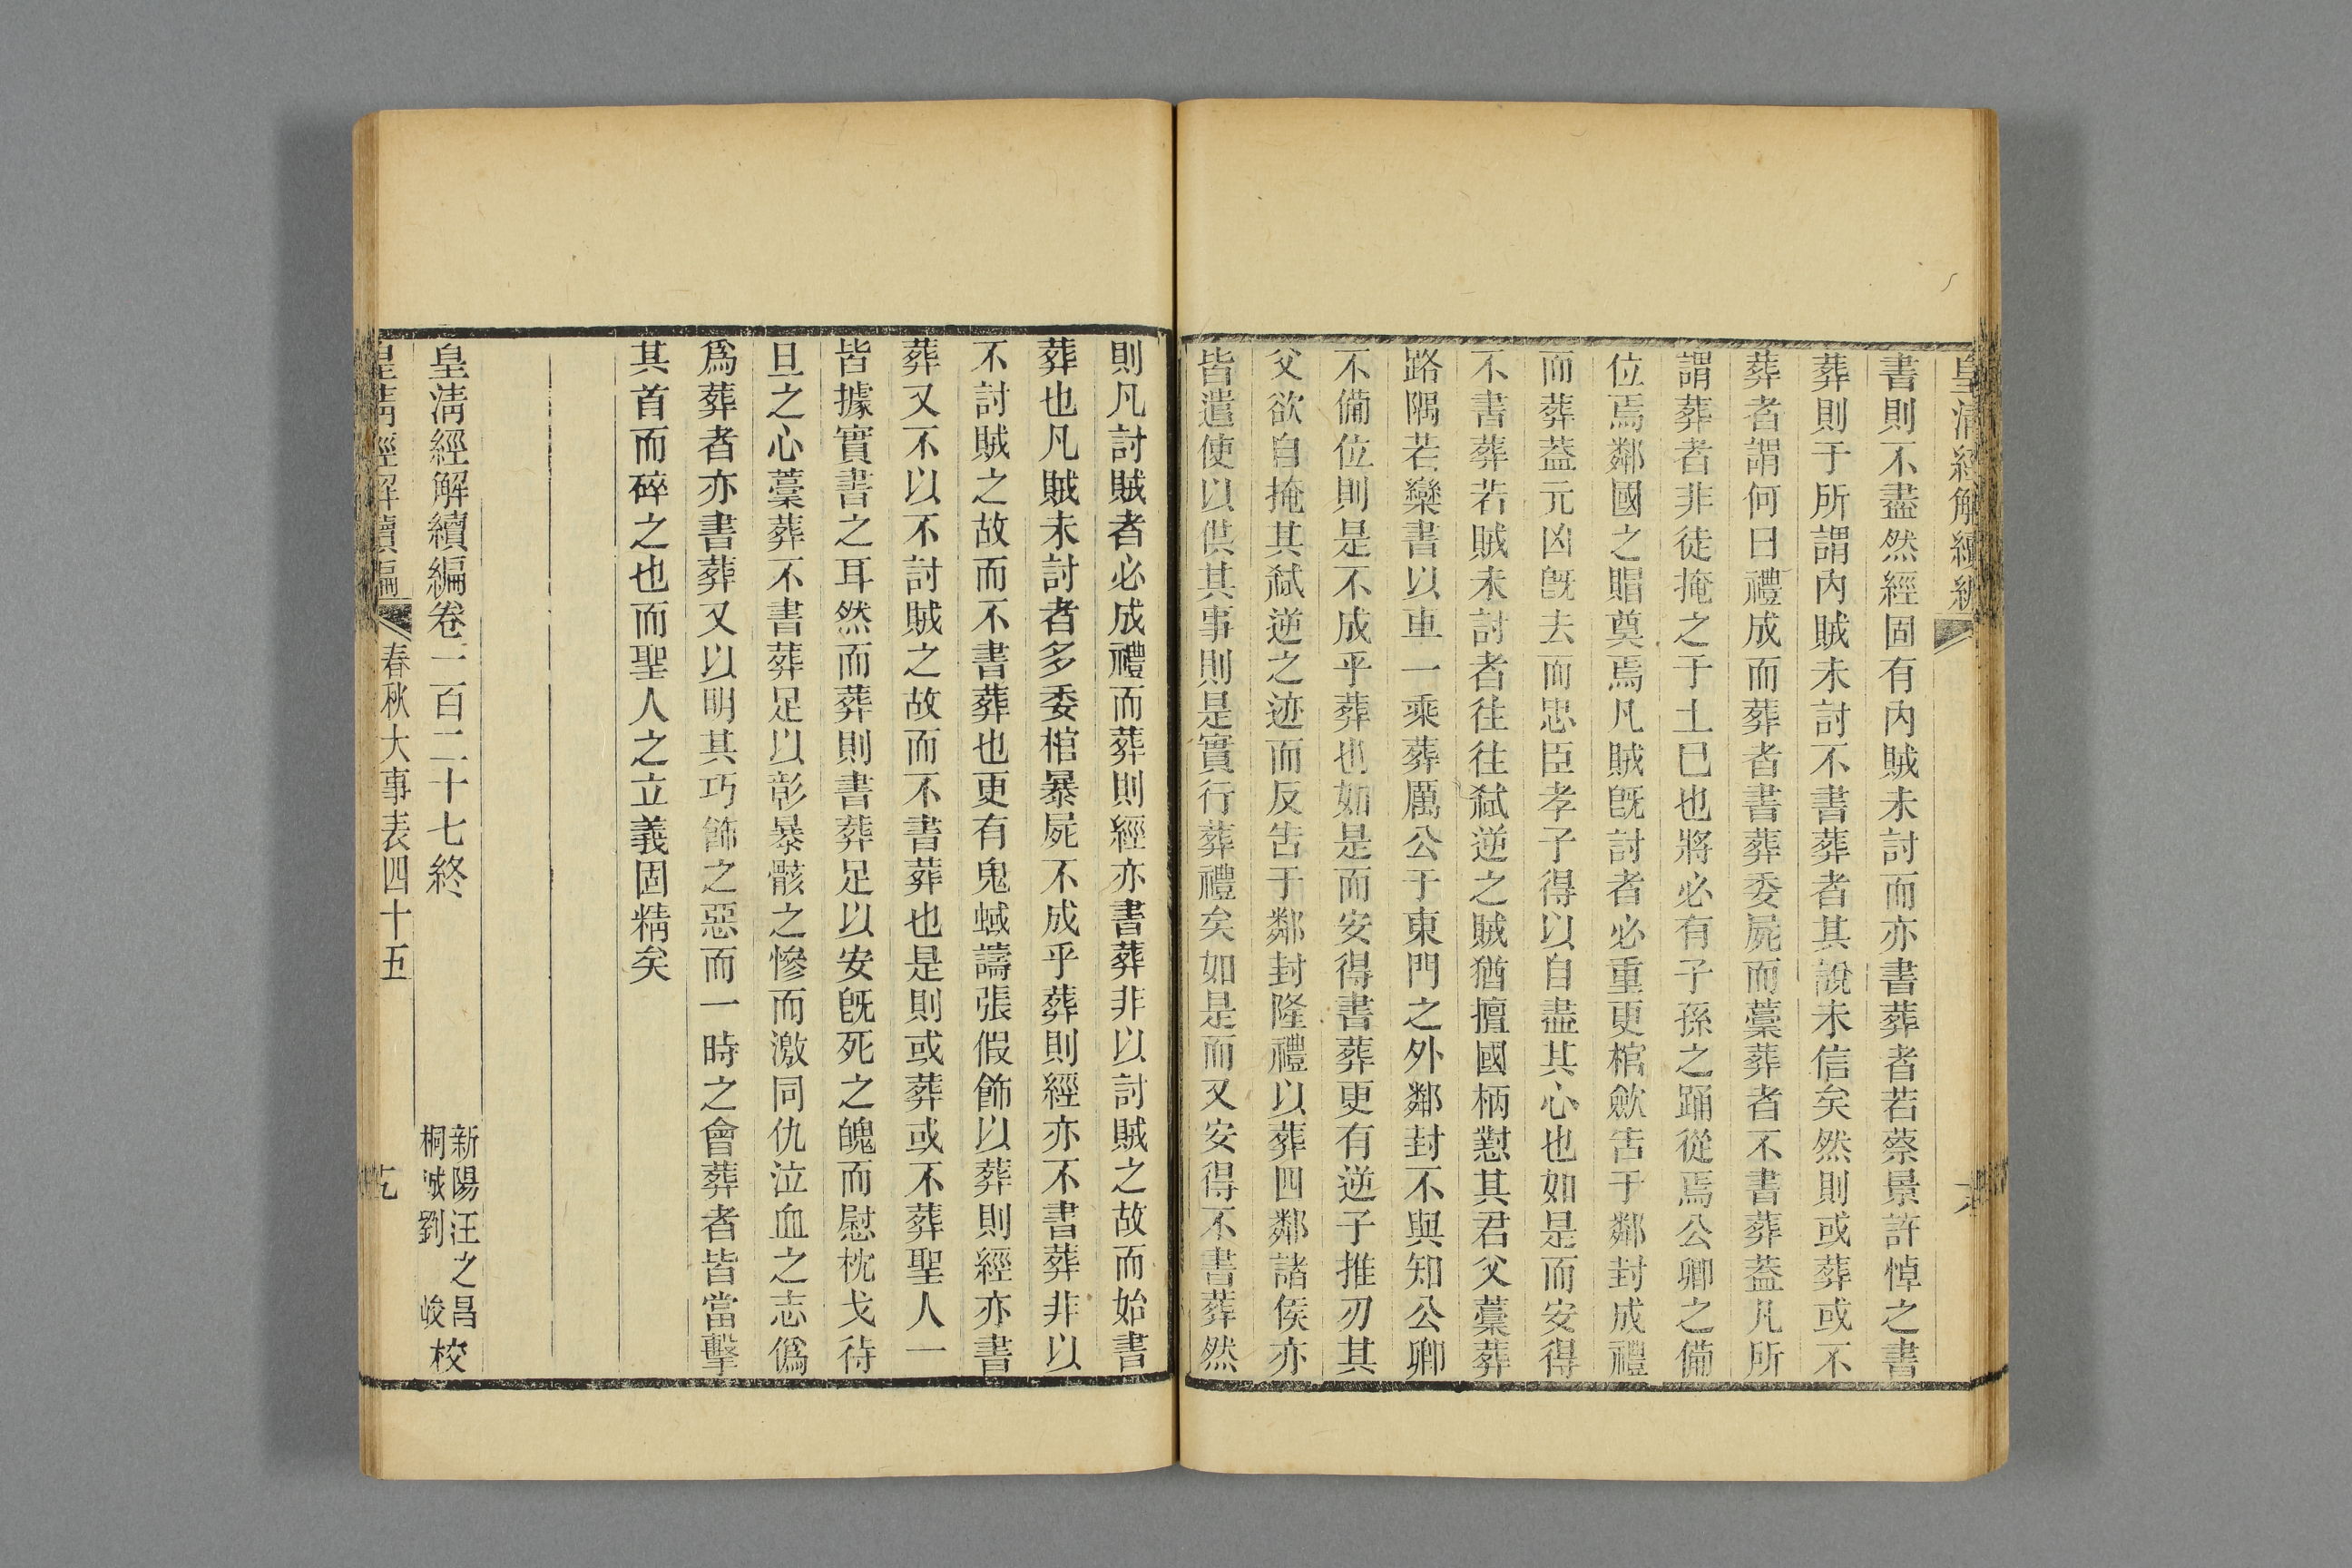 皇清經解續編
書則不盡然經固有內賊未討而亦書葬者若蔡景許悼之書
葬則于所謂內賊未討不書葬者其說未信矣然則或葬或不
葬者謂何曰禮成而葬者書葬委屍而藁葬者不書葬葢凡所
謂葬者非徒掩之于土巳也將必有子孫之踊從焉公卿之備
位焉鄰國之賵奠焉凡賊旣討者必重更棺歛告于鄰封成禮
而葬葢元凶旣去而忠臣孝子得以自盡其心也如是而安得
不書葬若賊未討者往往弒逆之賊猶擅國柄懟其君父藁葬
路隅若欒書以車一乘葬厲公于東門之外鄰封不與知公卿
不備位則是不成乎葬也如是而安得書葬更有逆子推刃其
父欲自掩其弒逆之迹而反告于鄰封隆禮以葬四鄰諸侯亦
皆遣使以供其事則是實行葬禮矣如是而又安得不書葬然
則凡討賊者必成禮而葬則經亦書葬非以討賊之故而始書
葬也凡賊未討者多委棺暴屍不成乎葬則經亦不書葬非以
不討賊之故而不書葬也更有鬼蜮譸張假飾以葬則經亦書
葬又不以不討賊之故而不書葬也是則或葬或不葬聖人一
皆據實書之耳然而葬則書葬足以安旣死之魄而慰枕戈待
旦之心藁葬不書葬足以彰暴骸之慘而激同仇泣血之志僞
爲葬者亦書葬又以明其巧飾之惡而一時之會葬者皆當擊
其首而碎之也而聖人之立義固精矣
皇清經解續編卷一百二十七終
新陽汪之昌
桐城劉 峻校
皇清經解續編 春秋大事表四十五